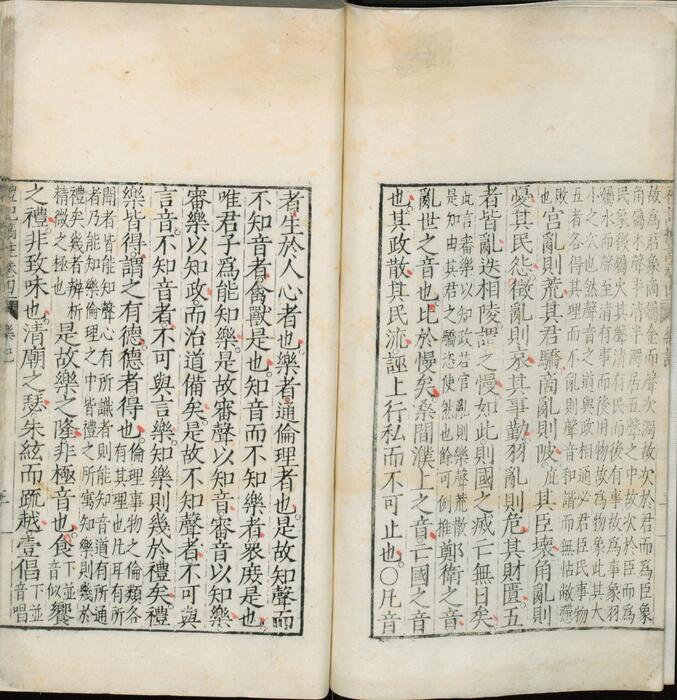 故為君象商屬金而聲次濁故次於君而為臣象
角屬木聲半清半濁居五聲之中故次於臣而為
民象徵屬火其聲清有民而後有事故為事象羽
屬水而聲至清有事而後用物故為物象此其大
小之次也然聲音之道與政相通必君臣民事物
五者各得其理而不亂則聲音和諧而無怗懘
敗也宮亂則荒其君驕商亂則陂其臣壞角亂則
憂其民怨徵亂則哀其事勤羽亂則危其財匱五
者皆亂迭相陵謂之慢如此則國之滅亡無日矣
此言審樂以知政若宮亂則樂聲荒散
是知由其君之驕恣使然也餘可倒推鄭衛之音
亂世之音也比於慢矣桑間濮上之音亡國之音
也其政散其民流誣上行私而不可止也○凡音
者生於人心者也樂者通倫理者也是故知聲而
不知音者禽獸是也知音而不知樂者衆庶是也
唯君子為能知樂是故審聲以知音審音以知樂
審樂以知政而治道備矣是故不知聲者不可與
言音不知音者不可與言樂知樂則幾於禮矣禮
樂皆得謂之有德德者得也倫理事物之倫類各
有其理也凡耳有所
聞者皆能知聲心有所識者則能知音道有所通
者乃能知樂倫理之中皆禮之所寓知樂則幾於
禮矣幾者辨析
精微之極也
是故樂之隆非極音也食下並音似饗下並
之禮非致味也清廟之瑟朱絃而疏越壹倡音唱
禮記 卷四 樂記